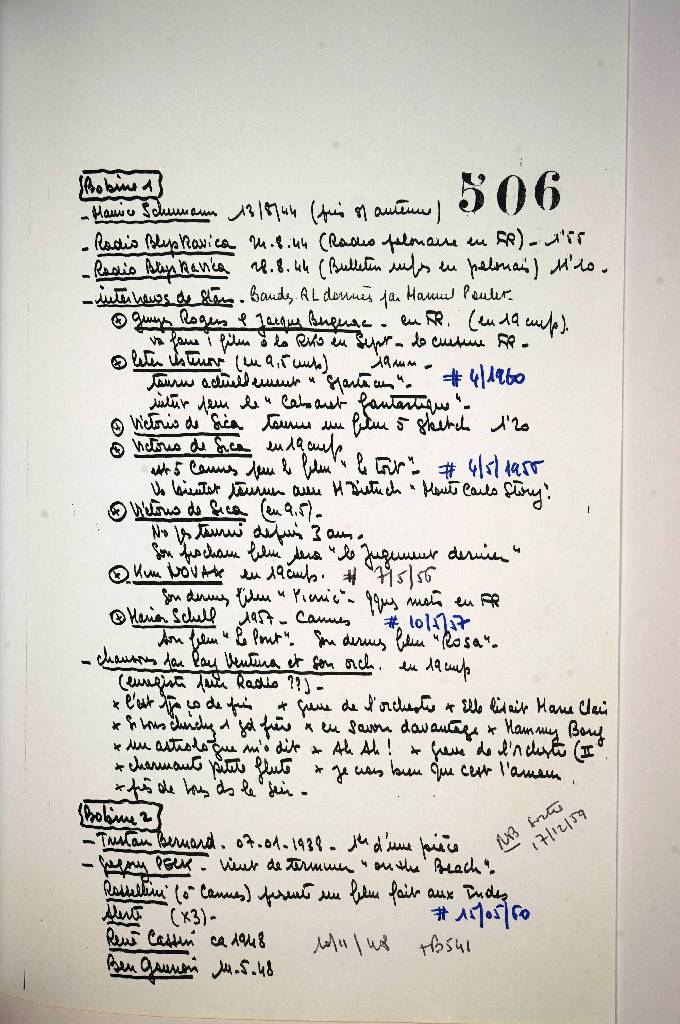 Bobine 1
506
- Maurice Schumann 13/8/44 (pris s/ antenne)
- Radio Blyskavica 24.8.44 (Radio polonaise en FR) - 1'55
- Radio Blyskavica 28.8.44 (Bulletin infos en polonais) 11'20 -
- interviews de Stars - Bandes AL données par Manuel Poulet -
Rogers & Jacques Bergerac - en FR. (en 19 cm/s).
va faire 1 film à la RKO en Sept - la cuisine FR -
Peter Ustinov (en 9,5 cm/s) 19mm -
tourne actuellement "Spartacus" - # 4/1960
pour le "Cabaret fantastique" -
Victorio de Sica tourne un film 5 sketch 1'20
Victorio de Sica en 19 cm/s
est à Cannes pour le film "Le toit" - # 4/5/1955
Va bientôt tourner avec M Dietrich "Monte Carlo Story".
Victorio de Sica (en 9,5) -
N'a pas tourné depuis 3 ans -
Son prochain film sera "le Jugement dernier"
Kim NOVAK en 19 cm/s. # 7/5/56
Son dernier film "Picnic" - qques mots en FR
Maria Schell 1957 - Cannes # 10/5/57
son film "Le Pont". Son dernier film "Rosa" -
- chansons par Ray Ventura et son orch. en 19 cm/s
(enregistré pour Radio ??) -
* C'est ço de pris * grève de l'orchestre * Elle lisait Marie Clair
* Si vous cherchez 1 gd frère * en savoir davantage * Mammy Bong
* un astrologue m'a dit * Ah Ah ! * grève de l'orchestre (II
* charmante petite flute * je crois bien que c'est l'amour
* près de vous ds le soir -
Bobine 2
- Tristan Bernard - 07-01-1938 - 1re d'une pièce
NB sortie 17/12/59
- Gregory PECK - vient de terminer "on the Beach" -
Rossellini (à Cannes) présente un film fait aux Indes
Alerte (x3) - # 15/05/60
René Cassin ca 1948 10/11/48 +B541
Ben Gourion 14.5.48